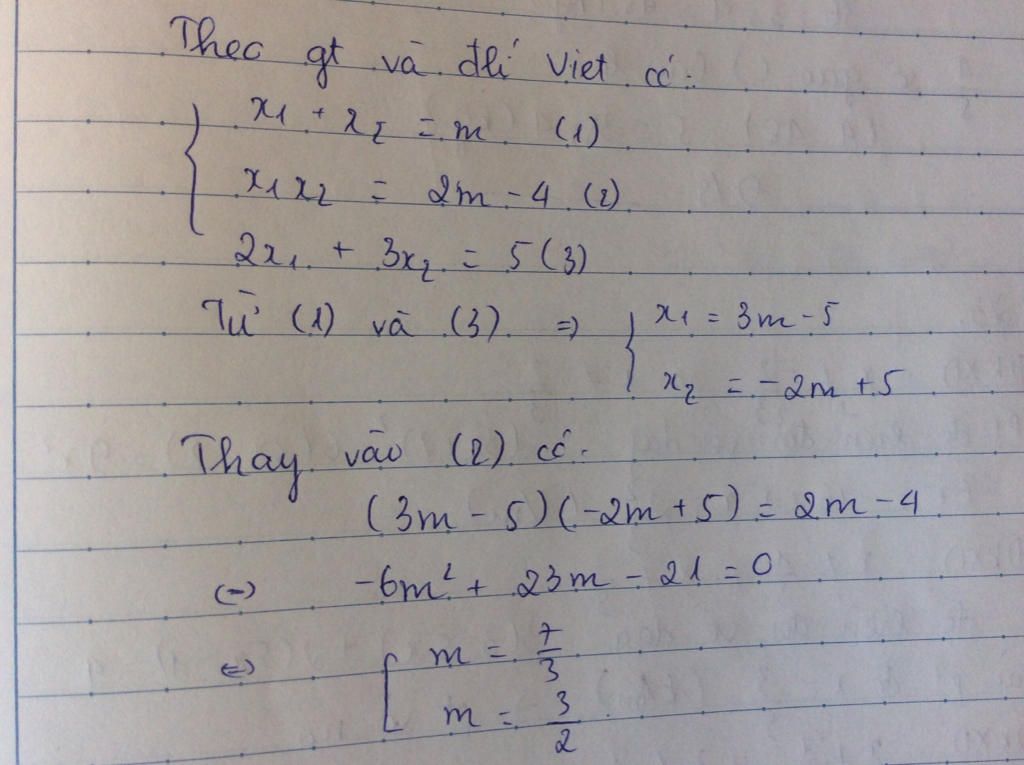 Theo gt và đlí Viet có:
x₁ + x₂ = m (1)
x₁x₂ = 2m - 4 (2)
2x₁ + 3x₂ = 5 (3)
Từ (1) và (3) ⇒ { x₁ = 3m - 5
x₂ = -2m + 5
Thay vào (2) có:
(3m - 5)(-2m + 5) = 2m - 4
(=) -6m² + 23m - 21 = 0
⇔ [ m = 7/3
m = 3/2